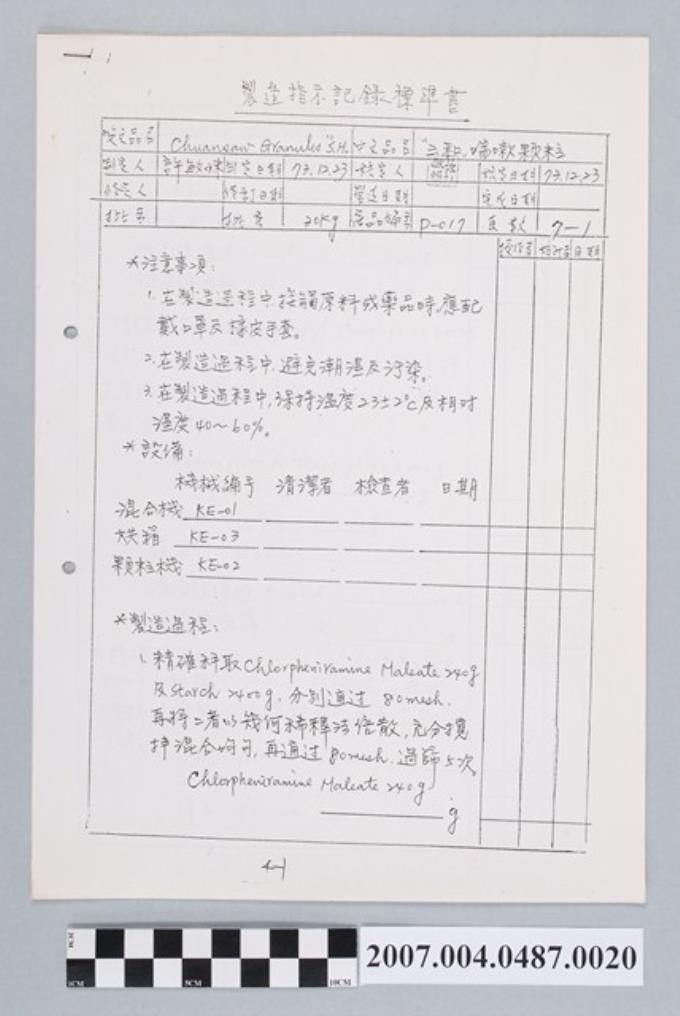 製造指示記錄標準書
英文品名 Chuansaw Granules "S.H." 中文品名 "三和"喘嗽顆粒
制定人 制定日期 73.12.23 核定人 核定日期 73.12.23
修定人 修訂日期 製造日期 完成日期
批號 批量 20kg 產品編號 P-017 頁數 7-1
操作者 核對者 日期
*注意事項:
1. 在製造過程中,接觸原料或藥品時,應配
戴口罩及橡皮手套。
2. 在製造過程中,避免潮濕及污染。
3. 在製造過程中,保持溫度23±2°C及相對
濕度40~60%。
*設備:
機械編號 清潔者 檢查者 日期
混合機 KE-01
烘箱 KE-03
顆粒機 KE-02
*製造過程:
1. 精確秤取Chlorpheniramine Maleate 240g
及Starch 2400g,分別通過 80mesh.
再將二者以幾何稀釋法倍散,充分攪
拌混合均勻,再通過80mesh.過篩5次
Chlorpheniramine Maleate 240g
g
1CM 5CM 10CM
2007.004.0487.0020